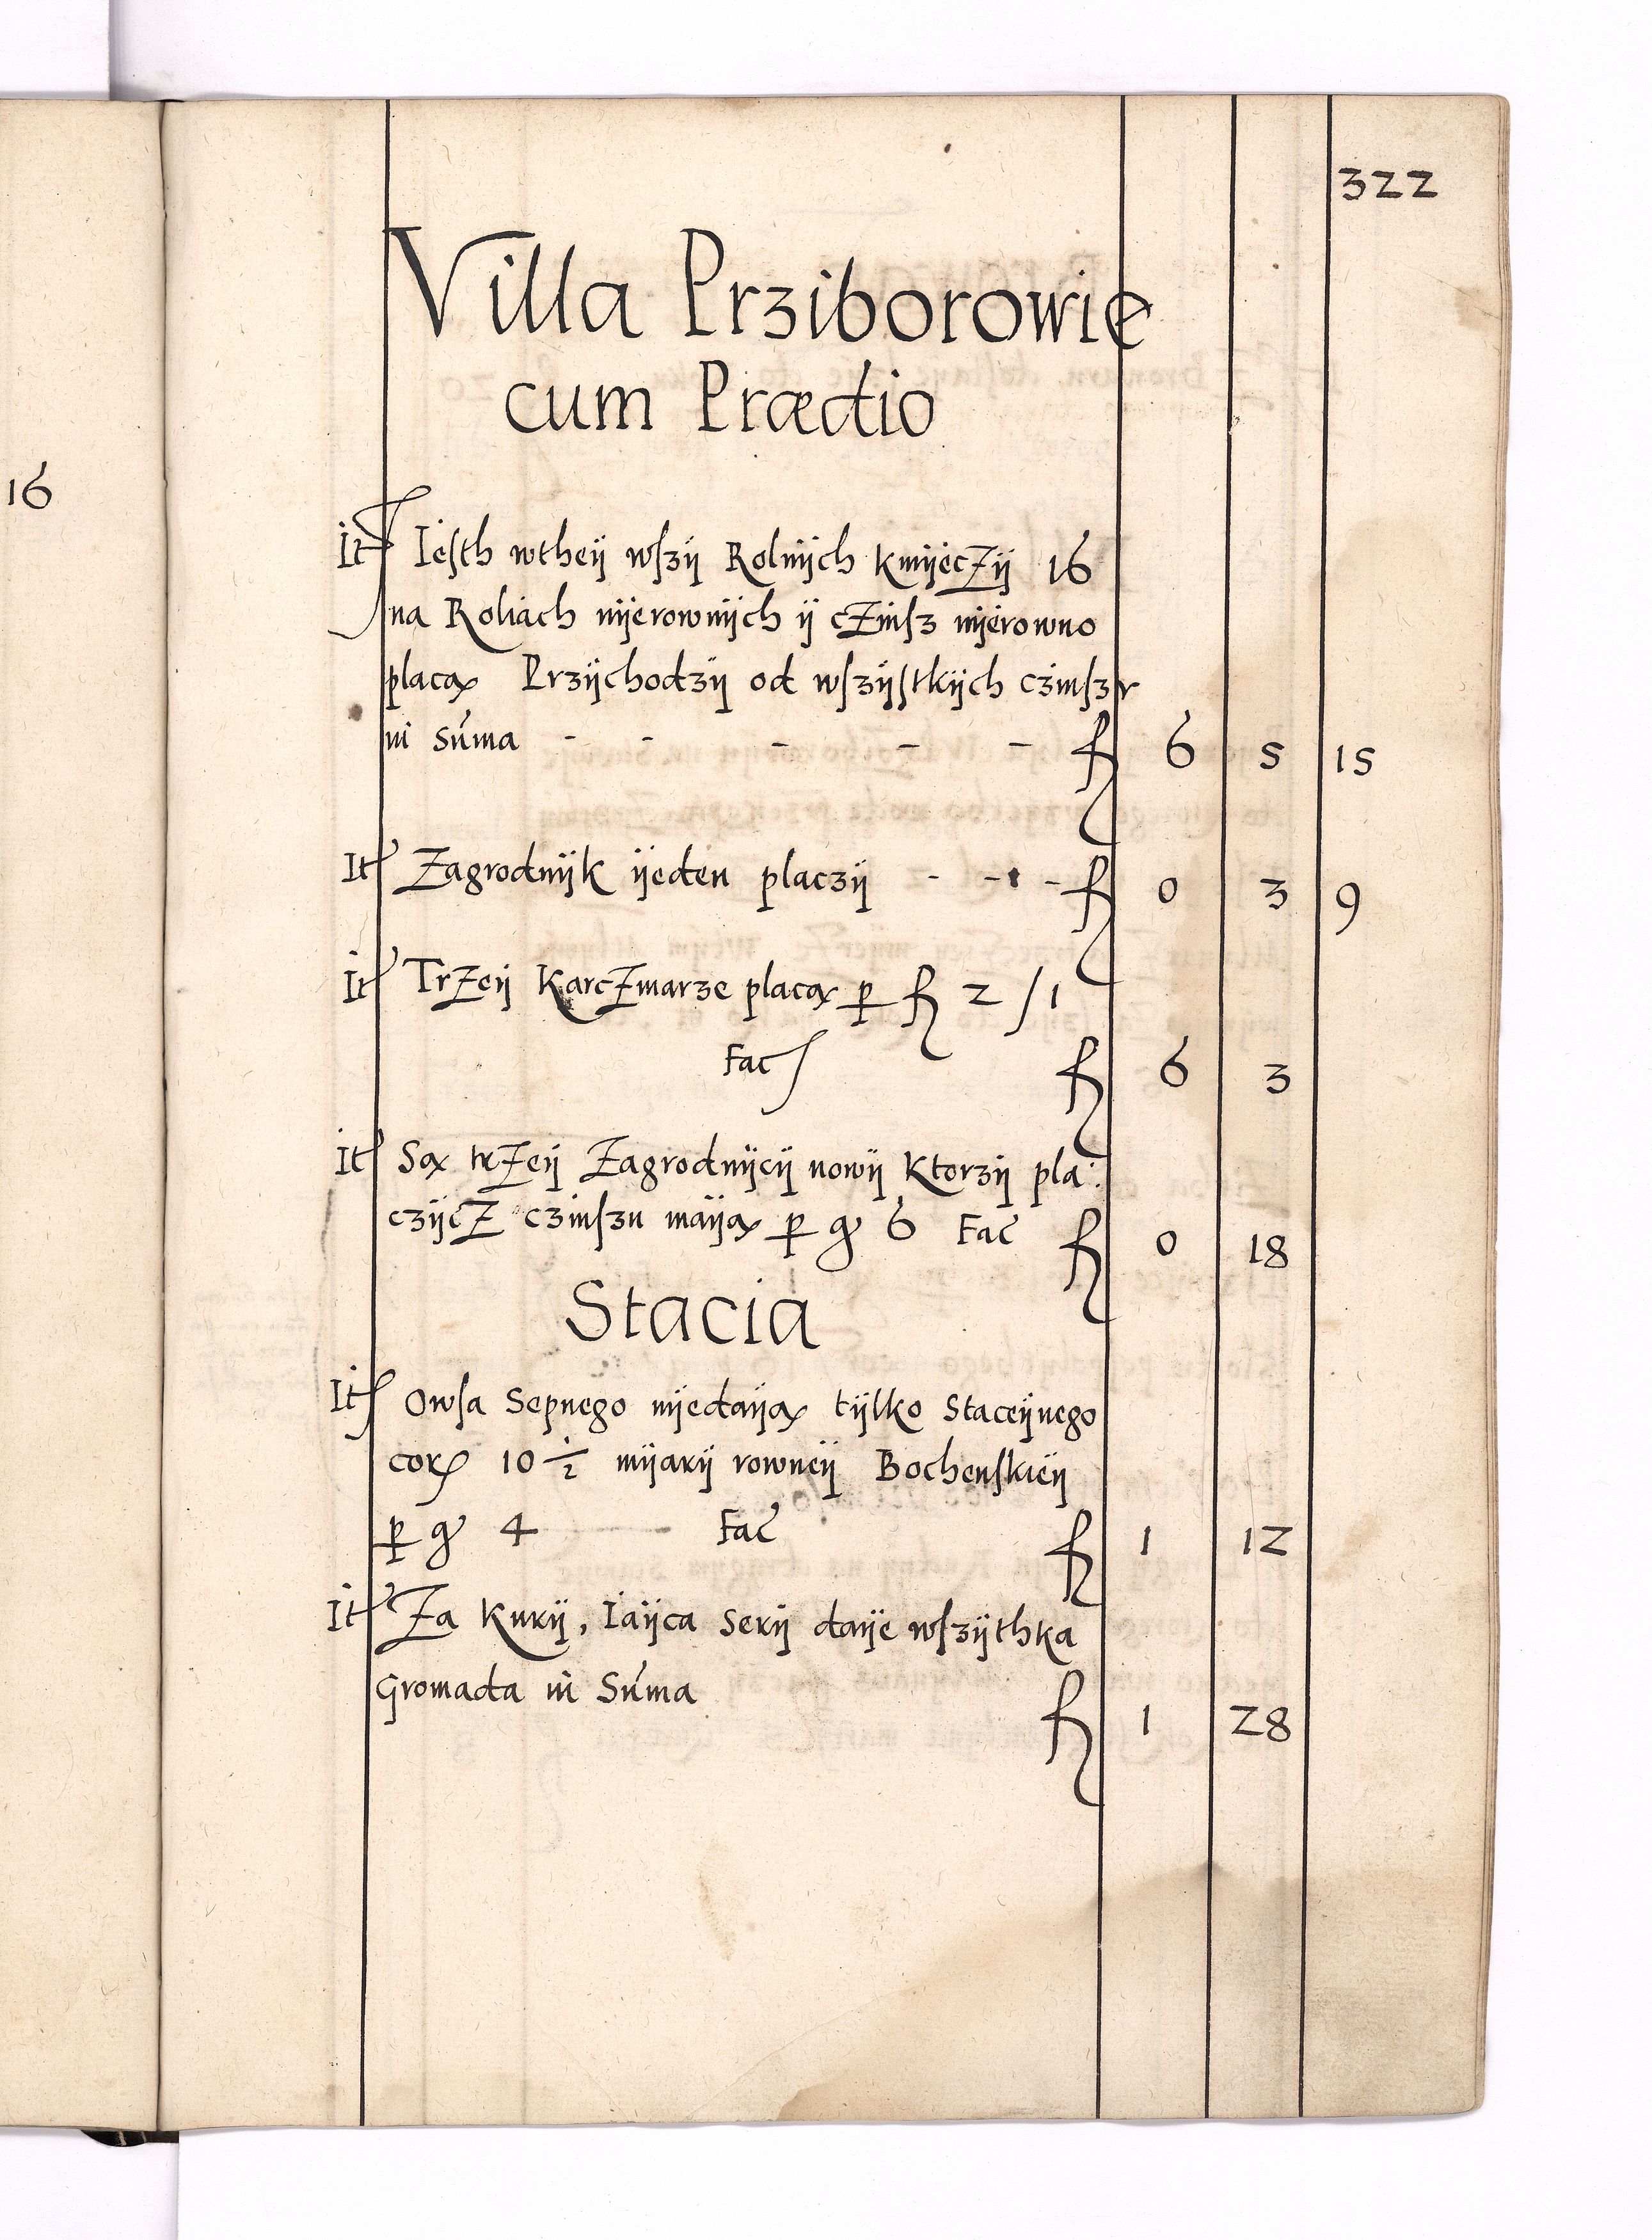 322
Villa Prziborowie
cum Prædio
16
It Iesth wtheÿ wszÿ Rolnÿch kmÿeczÿ 16
na Roliach nÿerownÿch ÿ czinsz nÿerowno
placą Przÿchodzÿ od wszÿstkÿch czinszv
in Suma - - - - - f 6 5 15
It Zagrodnÿk ÿeden placzÿ - - - f 0 3 9
It Trzeÿ Karczmarze placą p f 2 / 1
Fac f 6 3
It Są trzeÿ Zagrodnÿcÿ nowÿ Ktorzÿ pla:
czÿcz czinszu maÿą p g 6 Fac f 0 18
Stacia
It Owsa Sepnego nÿedaÿą tÿlko Staceÿnego
cor 10 1/2 mÿarÿ rowneÿ Bochenskieÿ
p g 4 Fac f 1 12
It Za Kurÿ, Iaÿca Serÿ daÿe wszÿthka
Gromada in Suma f 1 28